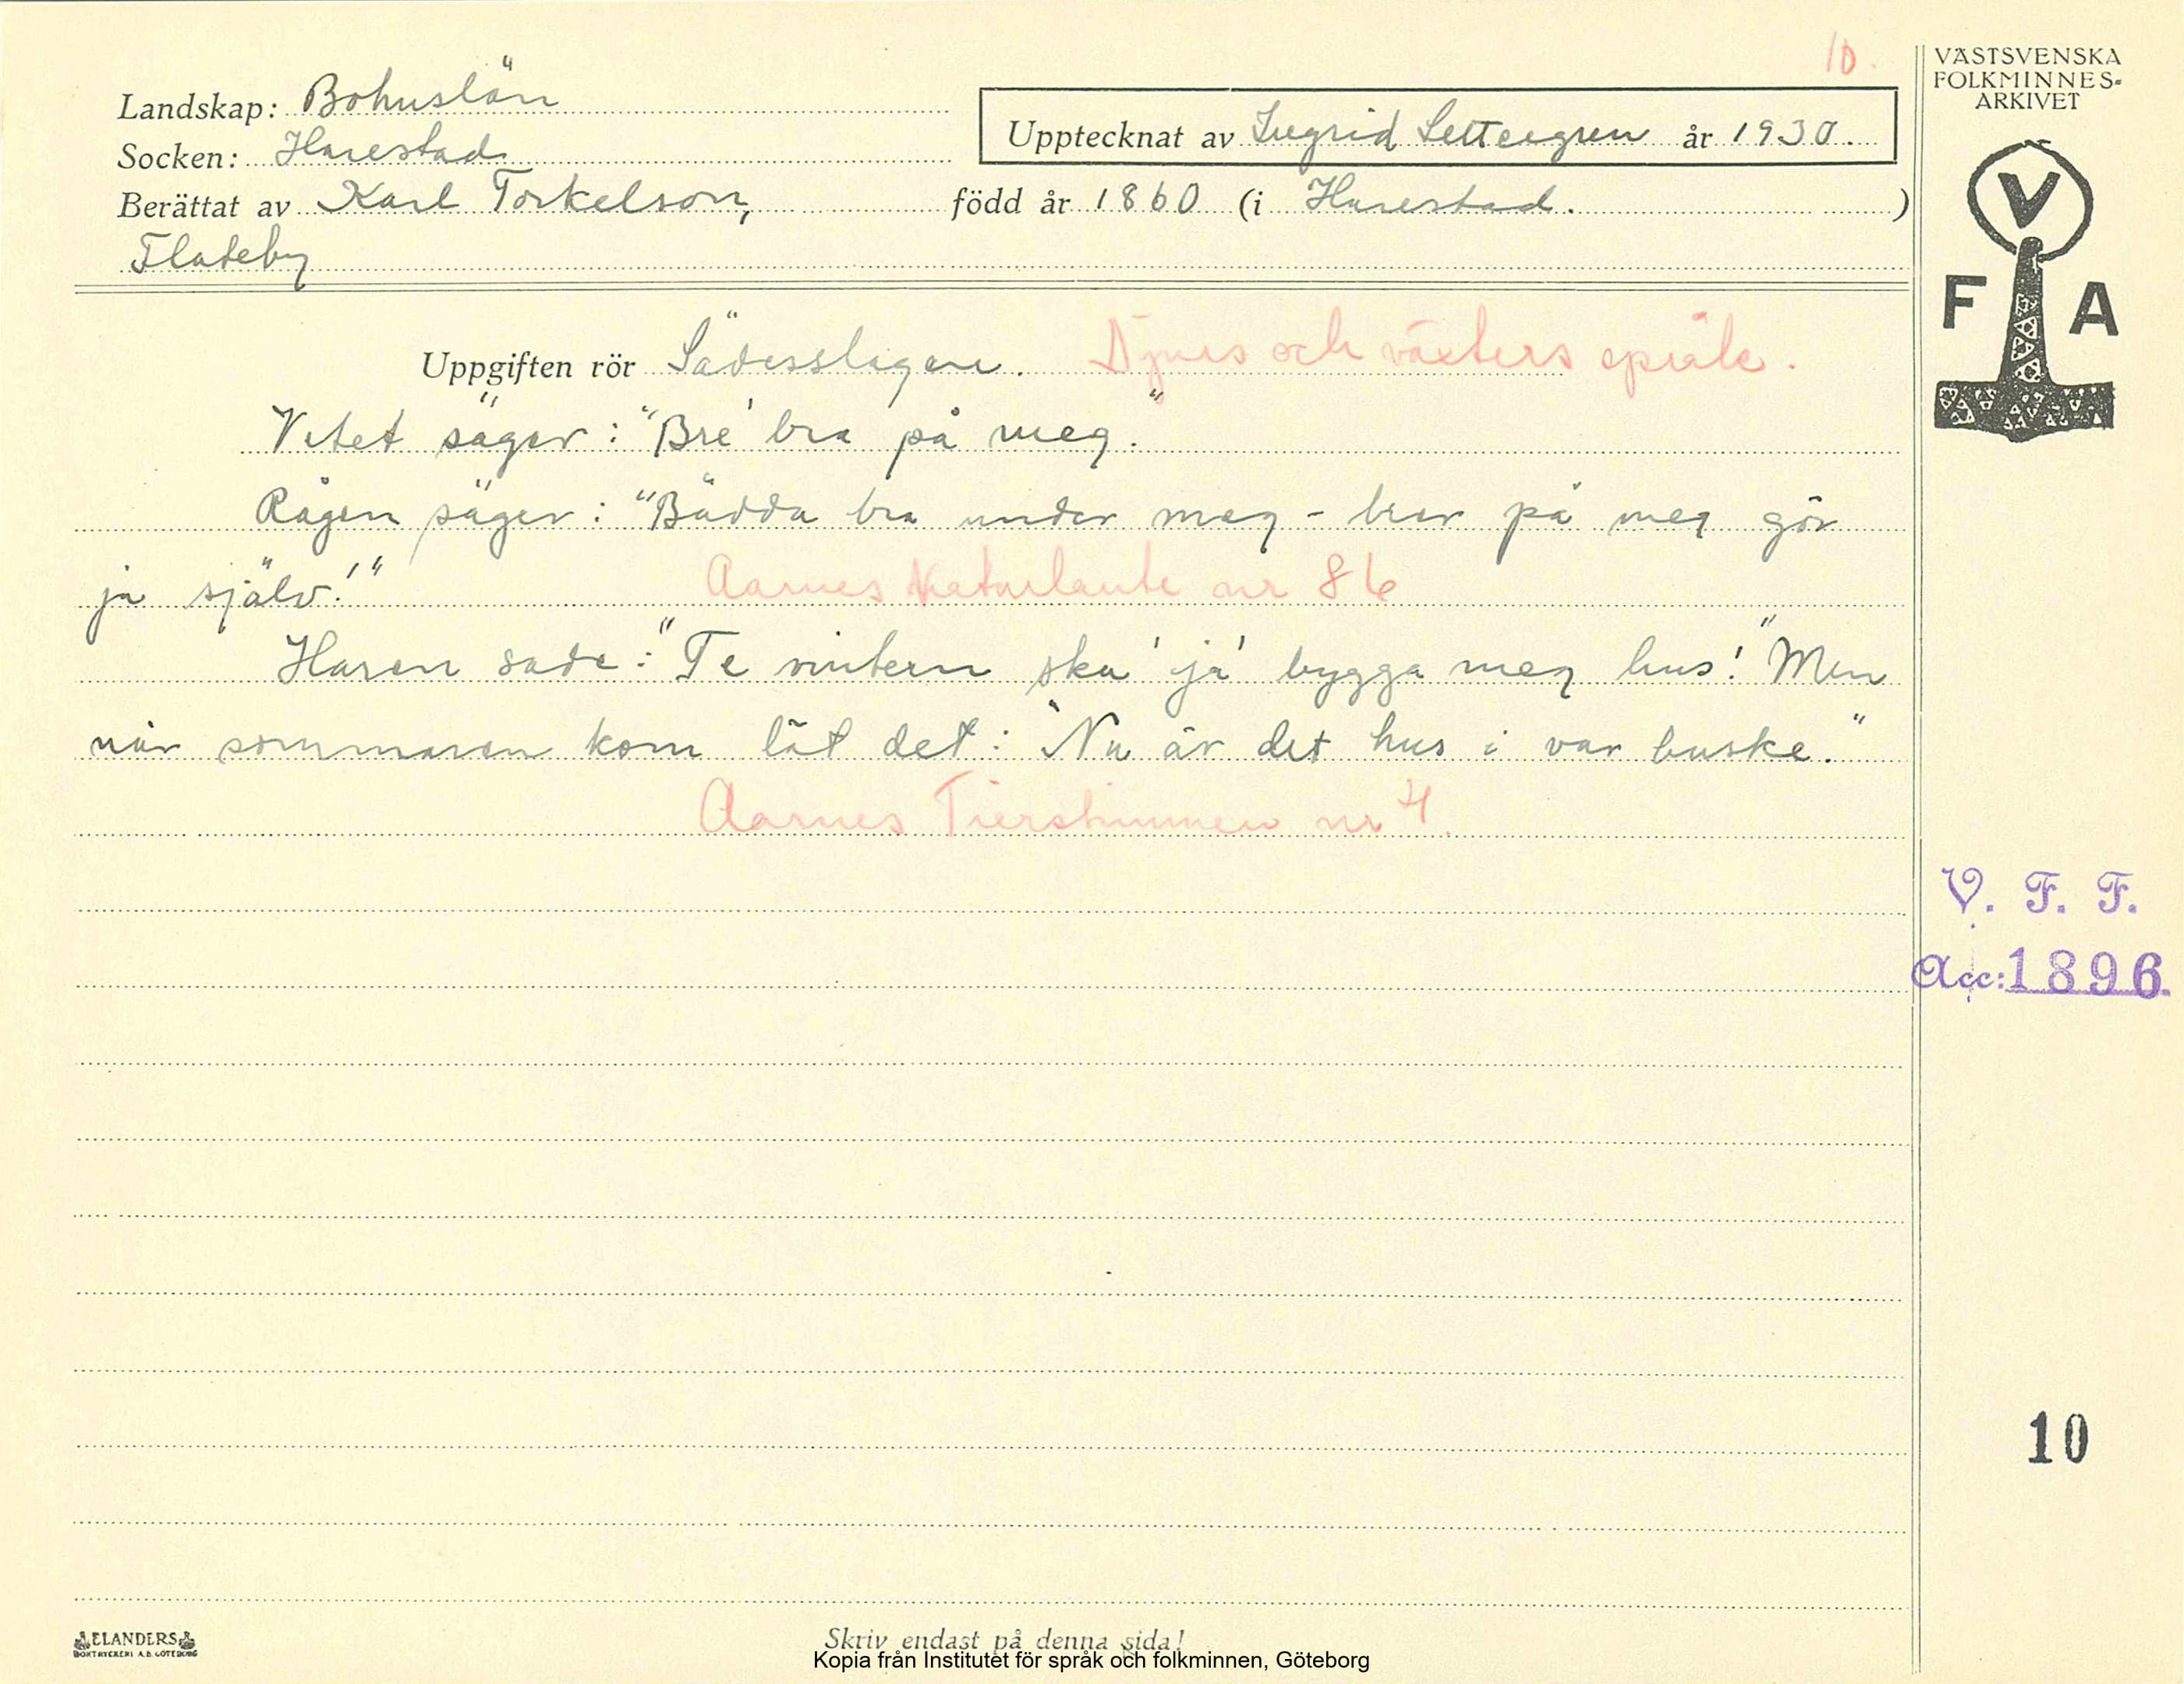 10.
VÄSTSVENSKA
FOLKMINNES-
ARKIVET
Landskap: Bohuslän
Upptecknat av Ingrid Settergren år 1930.
Socken: Harestad
Berättat av Karl Torkelson, född år 1860 (i Harestad. )
Flateby
V
F A
Uppgiften rör Sädesslagen. Djurs och växters språk.
Vetet säger: "Bre' bra på meg."
Rågen säger: "Bädda bra under meg - brer på meg gör
ja själv!"
Aarnes Naturlaute nr 86
Haren sade: "Te vintern ska' ja' bygga meg hus!" Men
när sommaren kom lät det: "Nu är det hus i var buske."
Aarnes Tierstimmen nr 4.
V. F. F.
Acc: 1896.
10
ELANDERS
BOKTRYCKERI A.B. GÖTEBORG
Skriv endast på denna sida!
Kopia från Institutet för språk och folkminnen, Göteborg